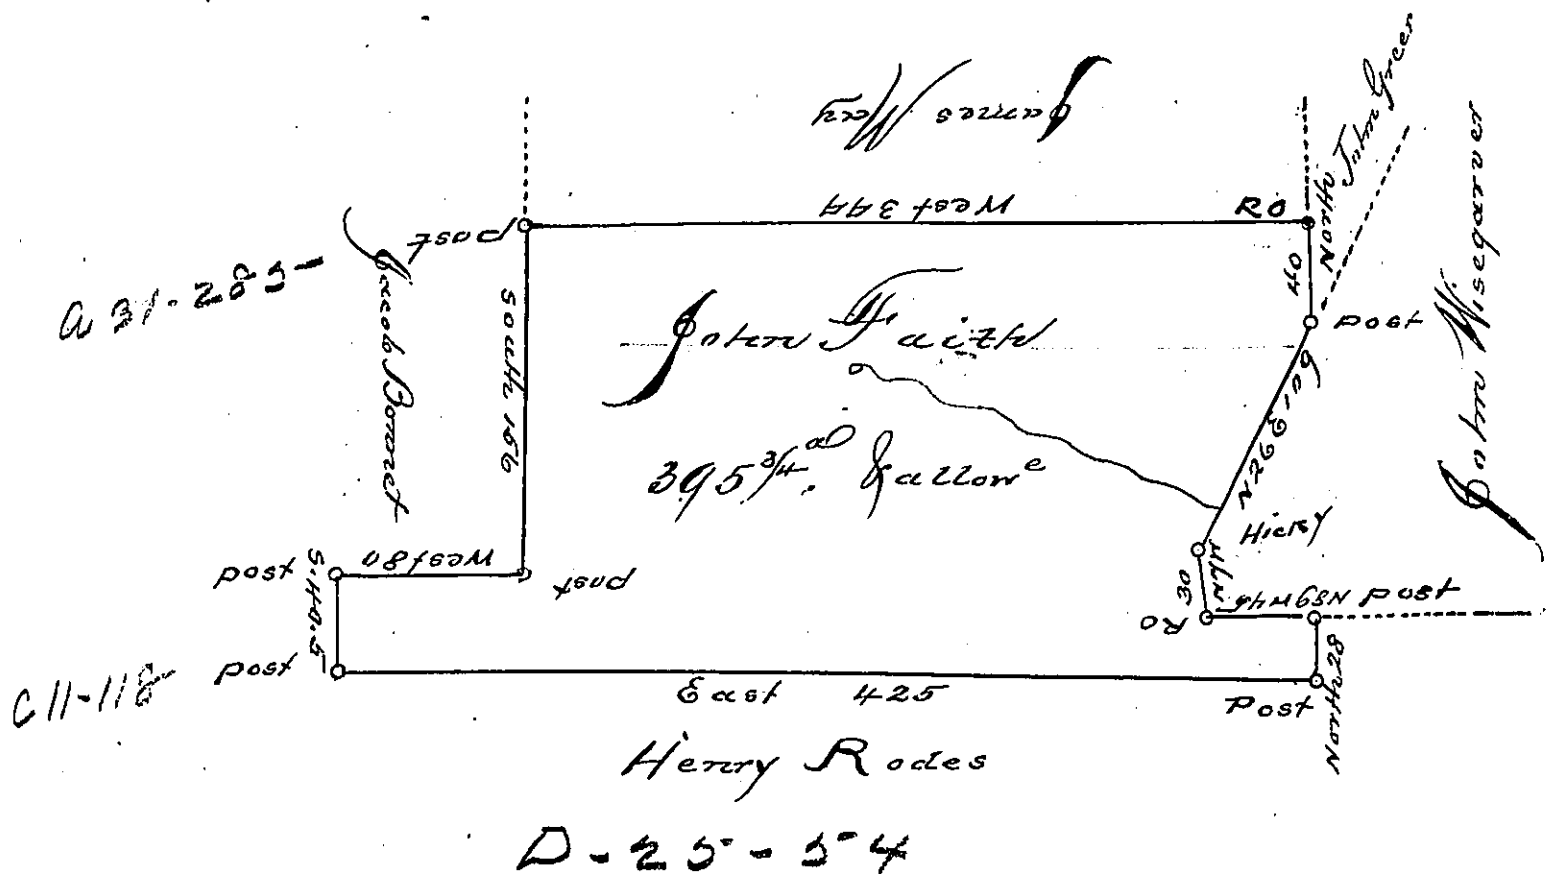 James Hay
John Greer
John Wisegarver
A 31-285-
Jacob Bonnet
post
West 344
RO
North
40
post
South 156
John Faith
395 3/4 a & allowe
N26E109
Hicky
N7W
30
RO
N89W45
post
post
West 80
post
S. 40.5
post
C 11-118
East 425
Post
North 28
Henry Rodes
D-25-54